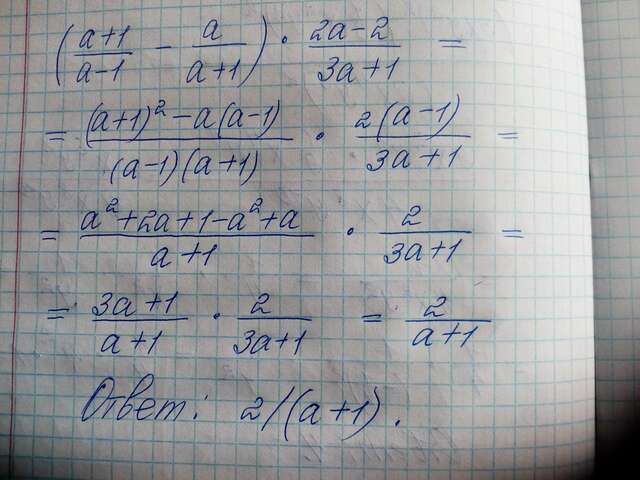 (a+1/a-1 - a/a+1) · 2a-2/3a+1 =
= (a+1)² - a(a-1)/(a-1)(a+1) · 2(a-1)/3a+1 =
= a²+2a+1-a²+a/a+1 · 2/3a+1 =
= 3a+1/a+1 · 2/3a+1 = 2/a+1
Ответ: 2/(a+1).